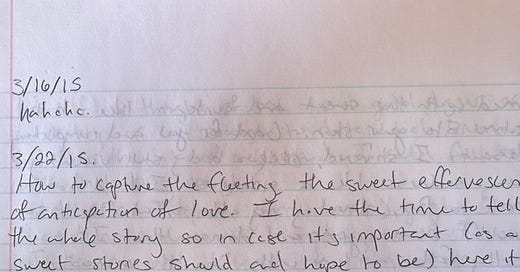 3/16/15
hahaha.
3/22/15.
How to capture the fleeting, the sweet effervescen
of anticipation of love. I have the time to tell
the whole story so in case it's important (as a
sweet stories should and hope to be) here it